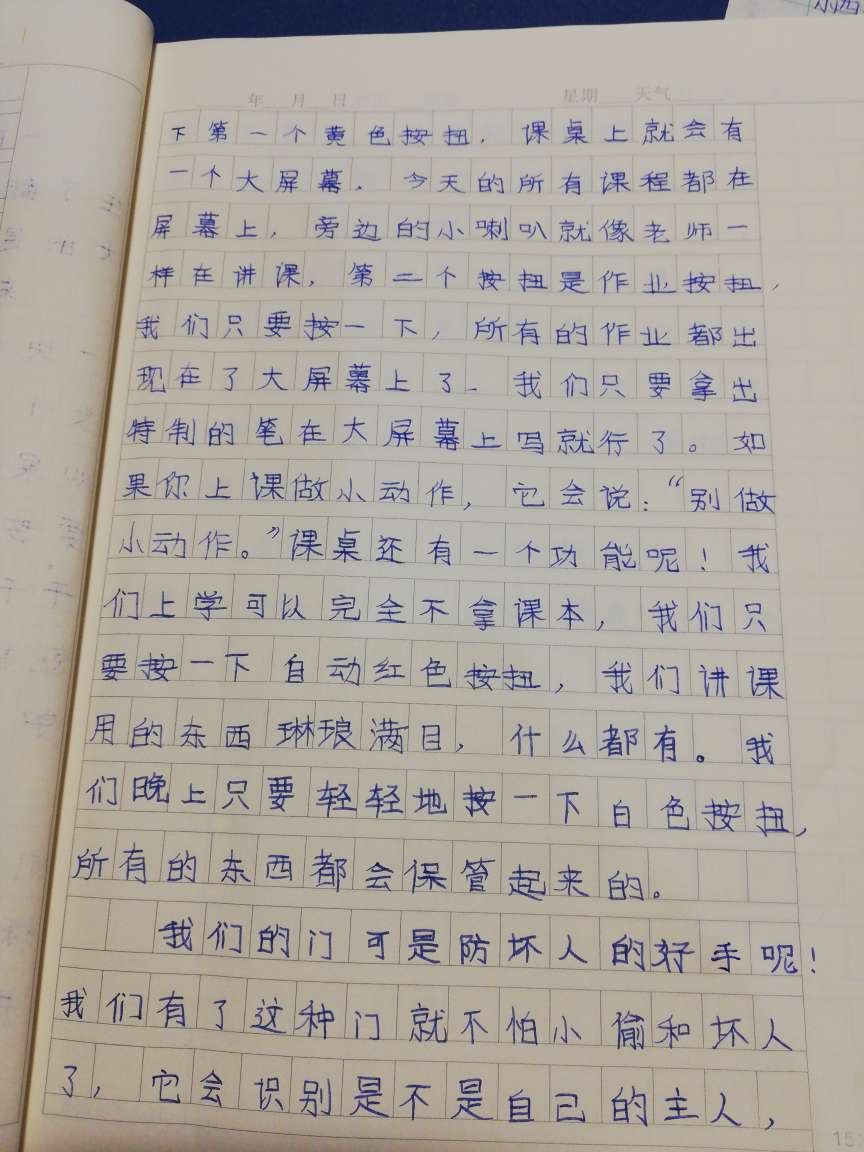 年 月 日 星期 天气
下第一个黄色按扭，课桌上就会有
一个大屏幕．今天的所有课程都在
屏幕上，旁边的小喇叭就像老师一
样在讲课，第二个按扭是作业按扭，
我们只要按一下，所有的作业都出
现在了大屏幕上了．我们只要拿出
特制的笔在大屏幕上写就行了。如
果你上课做小动作，它会说：“别做
小动作。”课桌还有一个功能呢！我
们上学可以完全不拿课本，我们只
要按一下自动红色按扭，我们讲课
用的东西琳琅满目，什么都有。我
们晚上只要轻轻地按一下白色按扭，
所有的东西都会保管起来的。
我们的门可是防坏人的好手呢！
我们有了这种门就不怕小偷和坏人
了，它会识别是不是自己的主人，